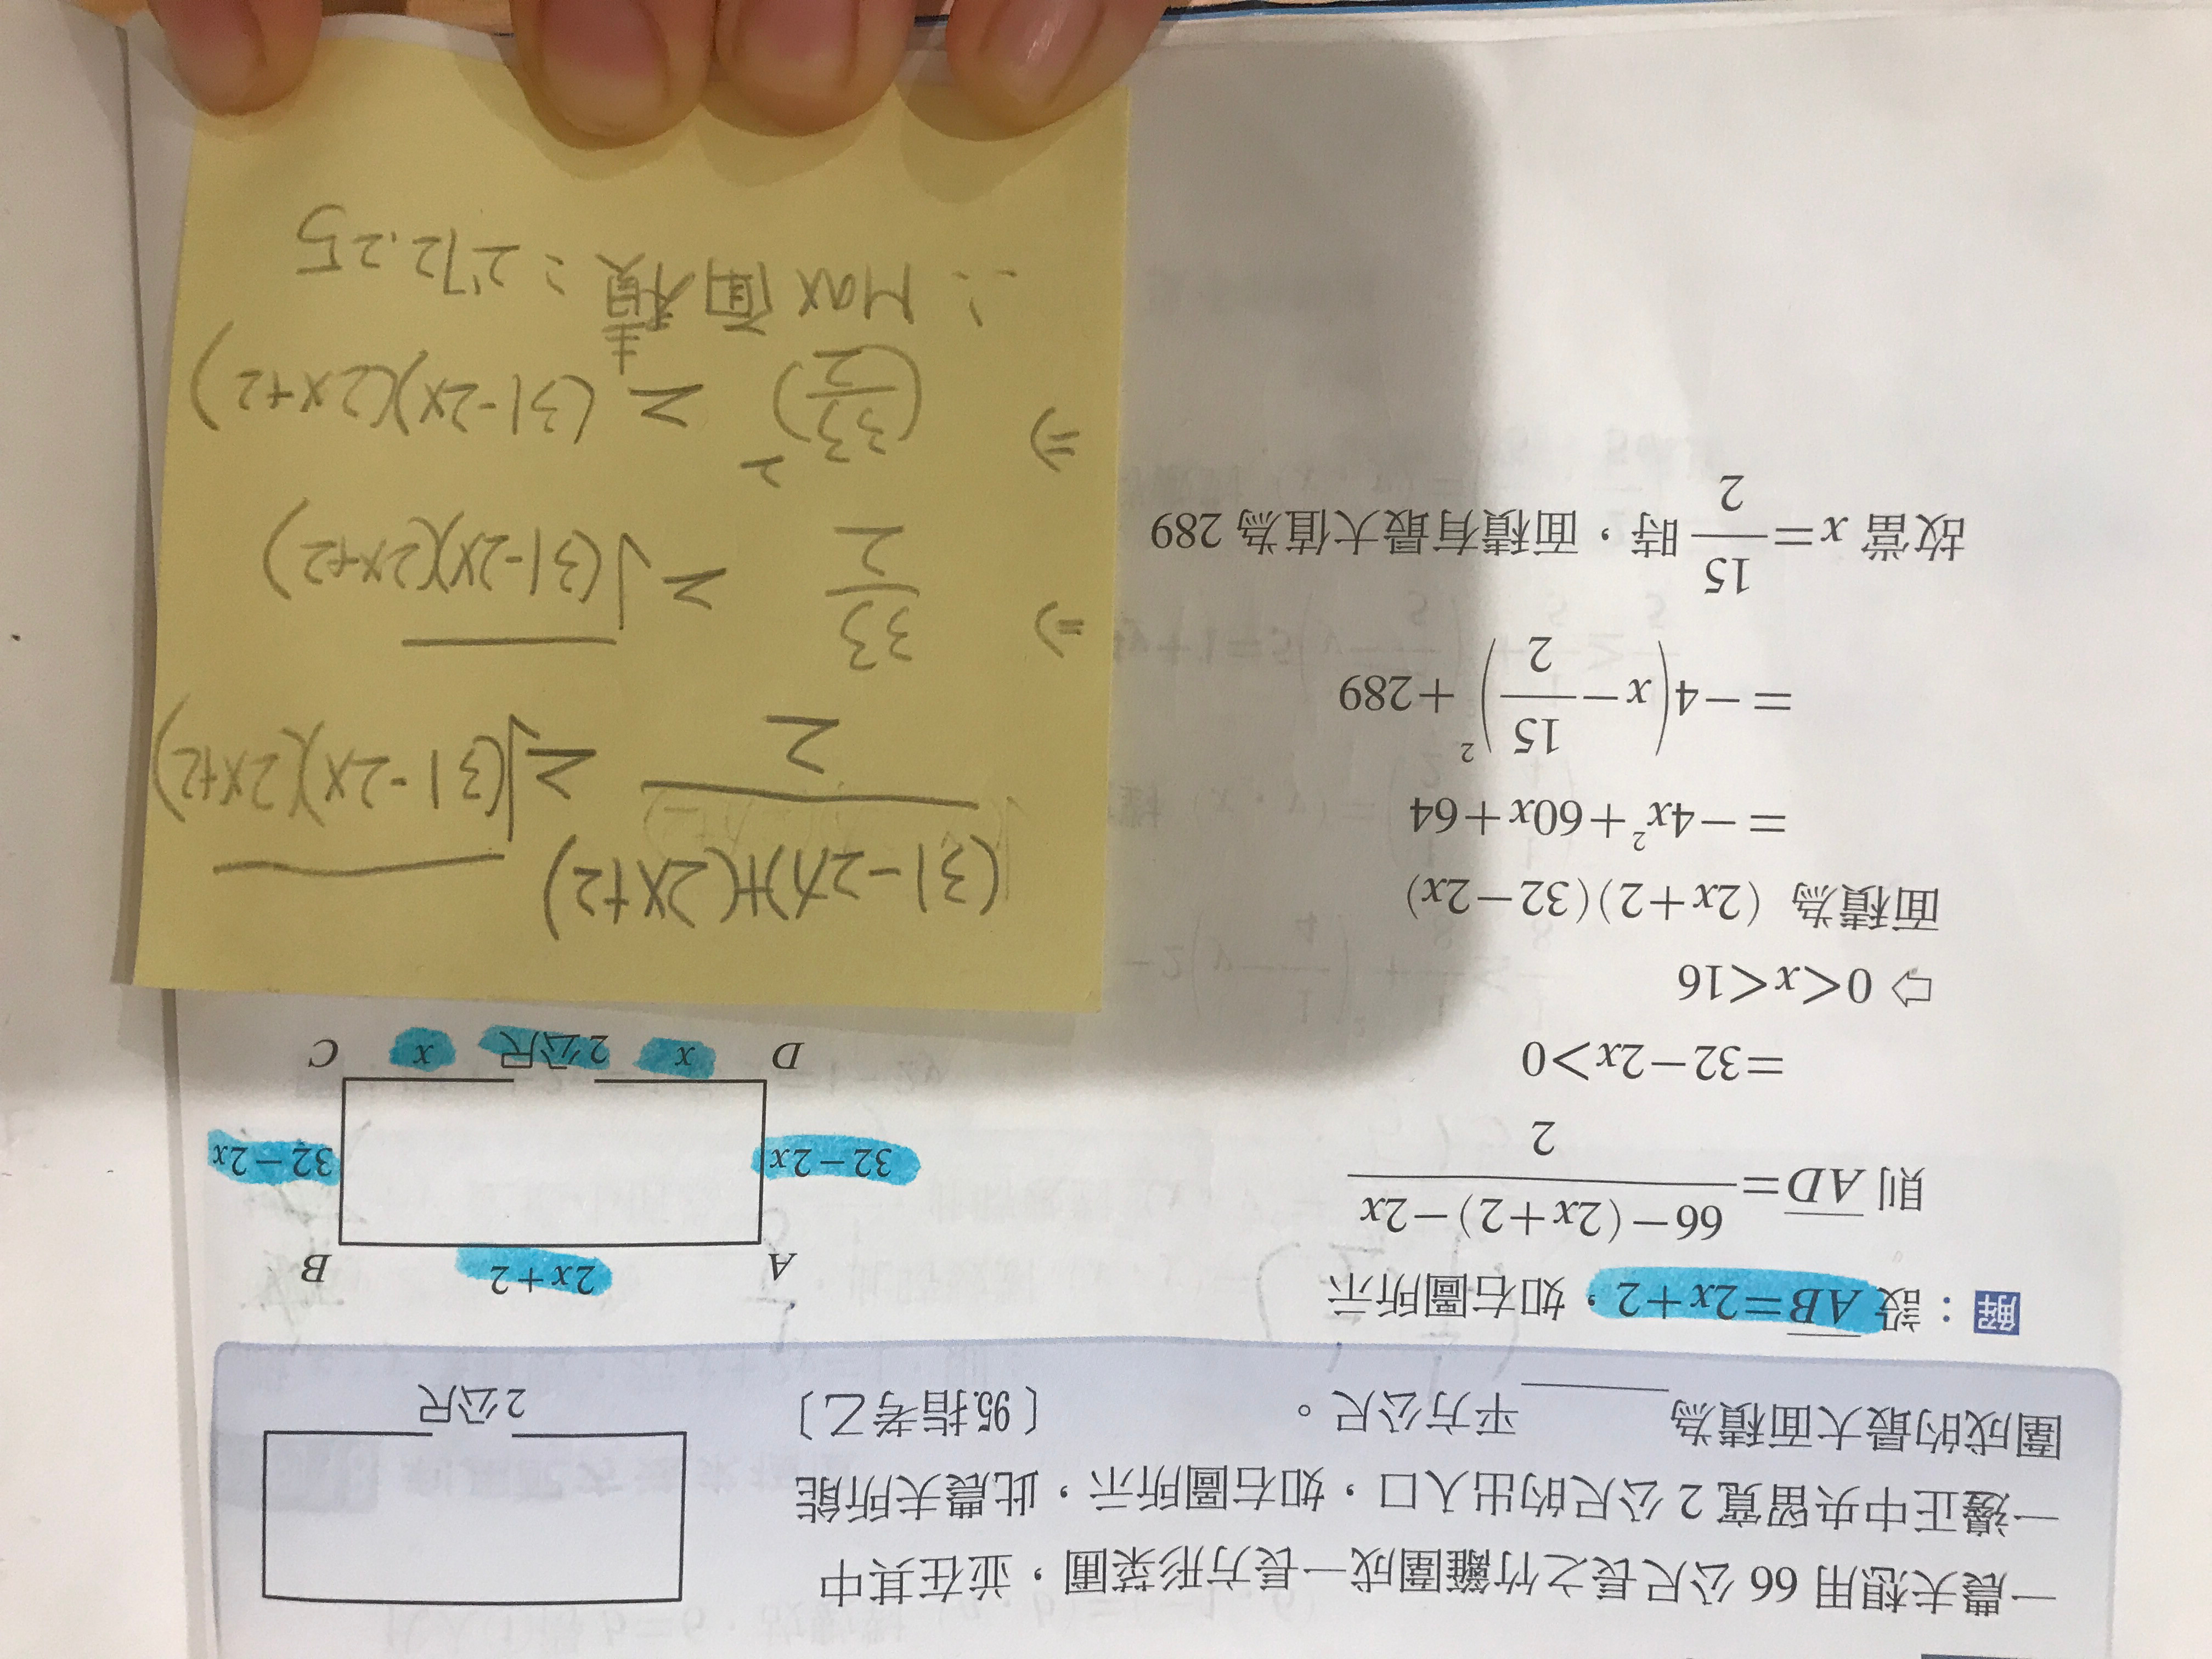 一農夫想用 66 公尺長之竹籬圍成一長方形菜圃，並在其中
一邊正中央留寬 2 公尺的出入口，如右圖所示，此農夫所能
圍成的最大面積為____平方公尺。
〔95.指考乙〕
2公尺
解：設 AB=2x+2，如右圖所示
則 AD=\frac{66-(2x+2)-2x}{2}
=32-2x>0
⇨ 0<x<16
面積為 (2x+2)(32-2x)
=-4x²+60x+64
=-4(x-\frac{15}{2})²+289
故當 x=\frac{15}{2} 時，面積有最大值為 289
A
2x+2
B
32-2x
32-2x
D
x
2公尺
x
C
\frac{(31-2x)+(2x+2)}{2} ≥ \sqrt{(31-2x)(2x+2)}
⇒ \frac{33}{2} ≥ \sqrt{(31-2x)(2x+2)}
⇒ (\frac{33}{2})² ≥ (31-2x)(2x+2)
∴ Max 面積：272.25